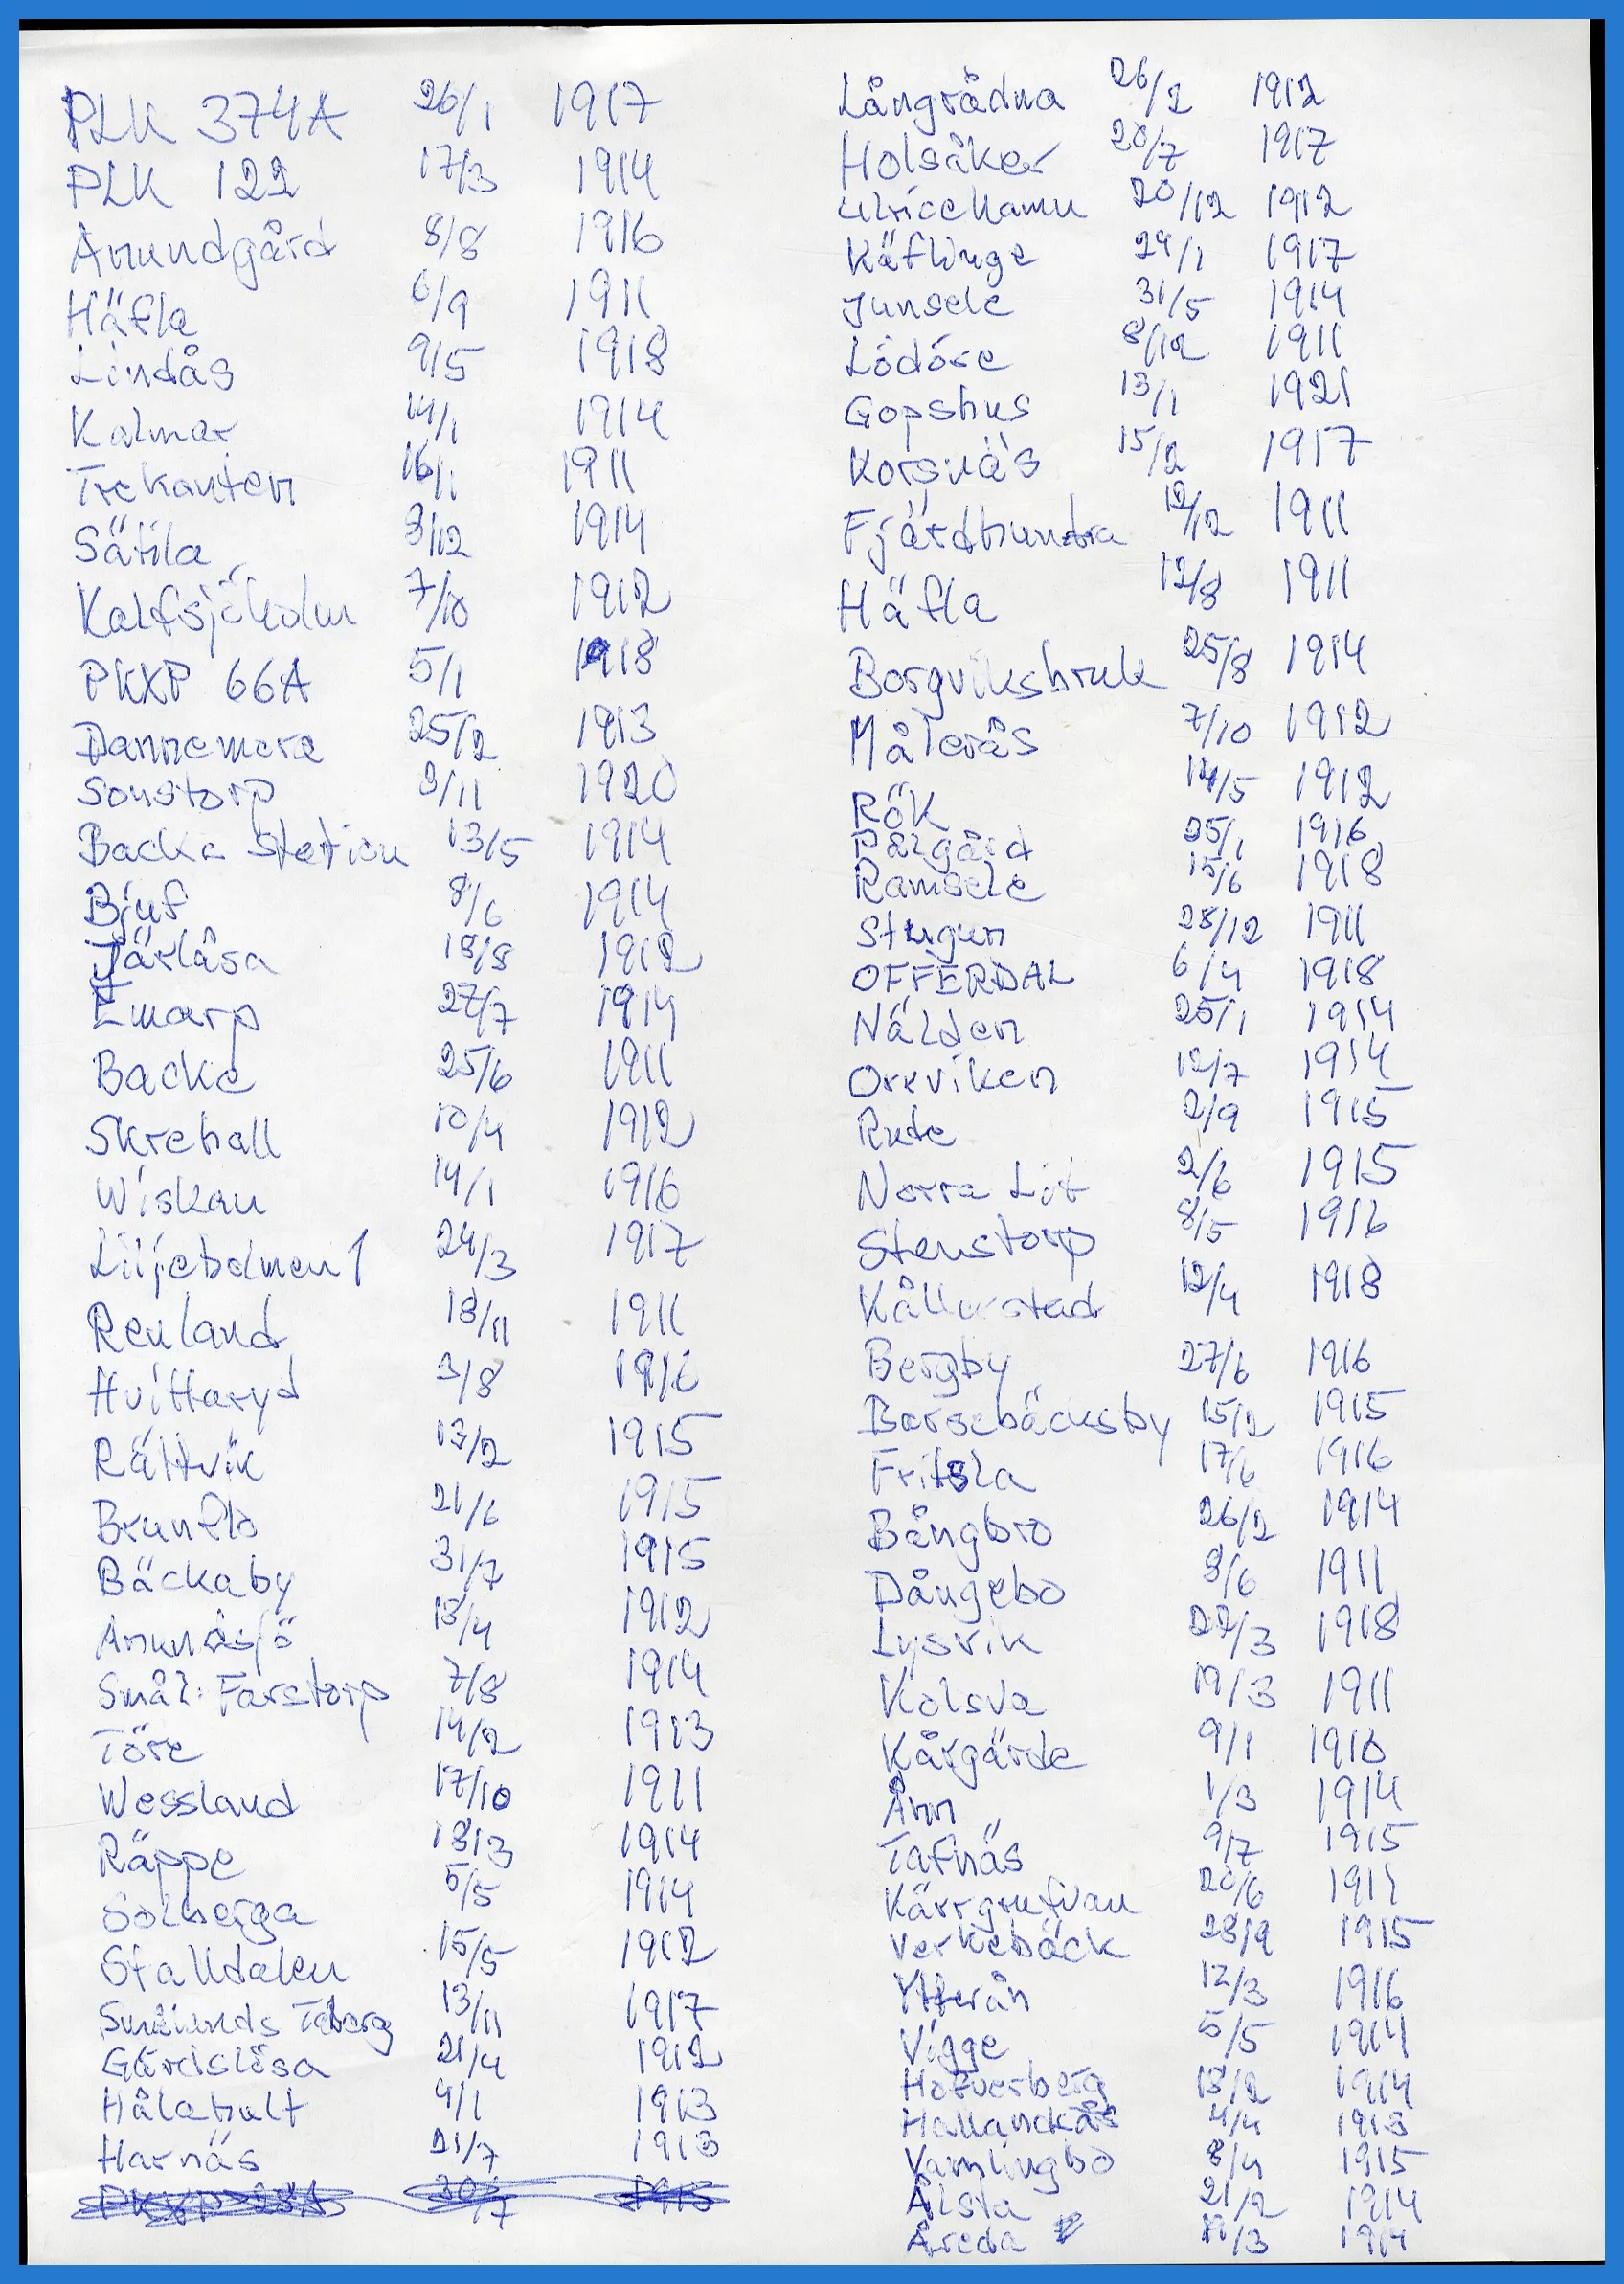 PLK 374A 26/1 1917
PLK 122 17/3 1914
Anundgård 8/8 1916
Häfla 6/9 1911
Lindås 9/5 1918
Kalmar 14/1 1914
Trekanten 16/1 1911
Sätila 3/12 1914
Kalfsjöholm 7/10 1912
PKXP 66A 5/1 1918
Dannemora 25/2 1913
Sonstorp 3/11 1920
Backa Station 13/5 1914
Bjuf 8/6 1914
Järlåsa 18/8 1912
Emarp 27/7 1914
Backe 25/6 1911
Skrehall 10/4 1912
Wiskan 14/1 1916
Liljeholmen 1 24/3 1917
Renland 18/11 1911
Hvittaryd 3/8 1916
Rättvik 13/2 1915
Brunflo 21/6 1915
Bäckaby 31/7 1915
Anundsjö 13/4 1912
Smål. Farstorp 7/8 1914
Töre 14/2 1913
Wessland 17/10 1911
Räppe 18/3 1914
Solberga 5/5 1914
Ställdalen 15/5 1912
Smålands Taberg 13/11 1917
Gärdslösa 21/4 1912
Hålahult 9/1 1913
Harnäs 21/7 1913
PKXP 28A 30/7 1913
Långrådna 26/2 1912
Holsåker 20/7 1917
Ulricehamn 20/12 1912
Käflinge 29/1 1917
Junsele 31/5 1914
Lödöse 8/12 1911
Gopshus 13/1 1921
Korsnäs 15/2 1917
Fjärdhundra 12/12 1911
Häfla 12/8 1911
Borgviksbruk 25/8 1914
Målerås 7/10 1912
Rök 14/5 1912
Pålgård 25/1 1916
Ramsele 15/6 1918
Stugun 28/12 1911
OFFERDAL 6/4 1918
Nälden 25/1 1914
Orrviken 12/7 1914
Rute 2/9 1915
Norra Lit 2/6 1915
Stenstorp 8/5 1916
Kållerstad 12/4 1918
Bergby 27/6 1916
Barsebäcksby 15/2 1915
Fritsla 17/6 1916
Bångbro 26/2 1914
Dångebo 8/6 1911
Lysvik 27/3 1918
Kolsva 19/3 1911
Kårgärde 9/1 1916
Ånn 1/3 1914
Tafnäs 9/7 1915
Kärrgrufvan 20/6 1911
Verkebäck 28/9 1915
Ytterån 12/3 1916
Vigge 5/5 1914
Hofverberg 13/2 1914
Hallanckås 4/4 1913
Vamlingbo 8/4 1915
Alsta 21/2 1914
Åreda 11/3 1914